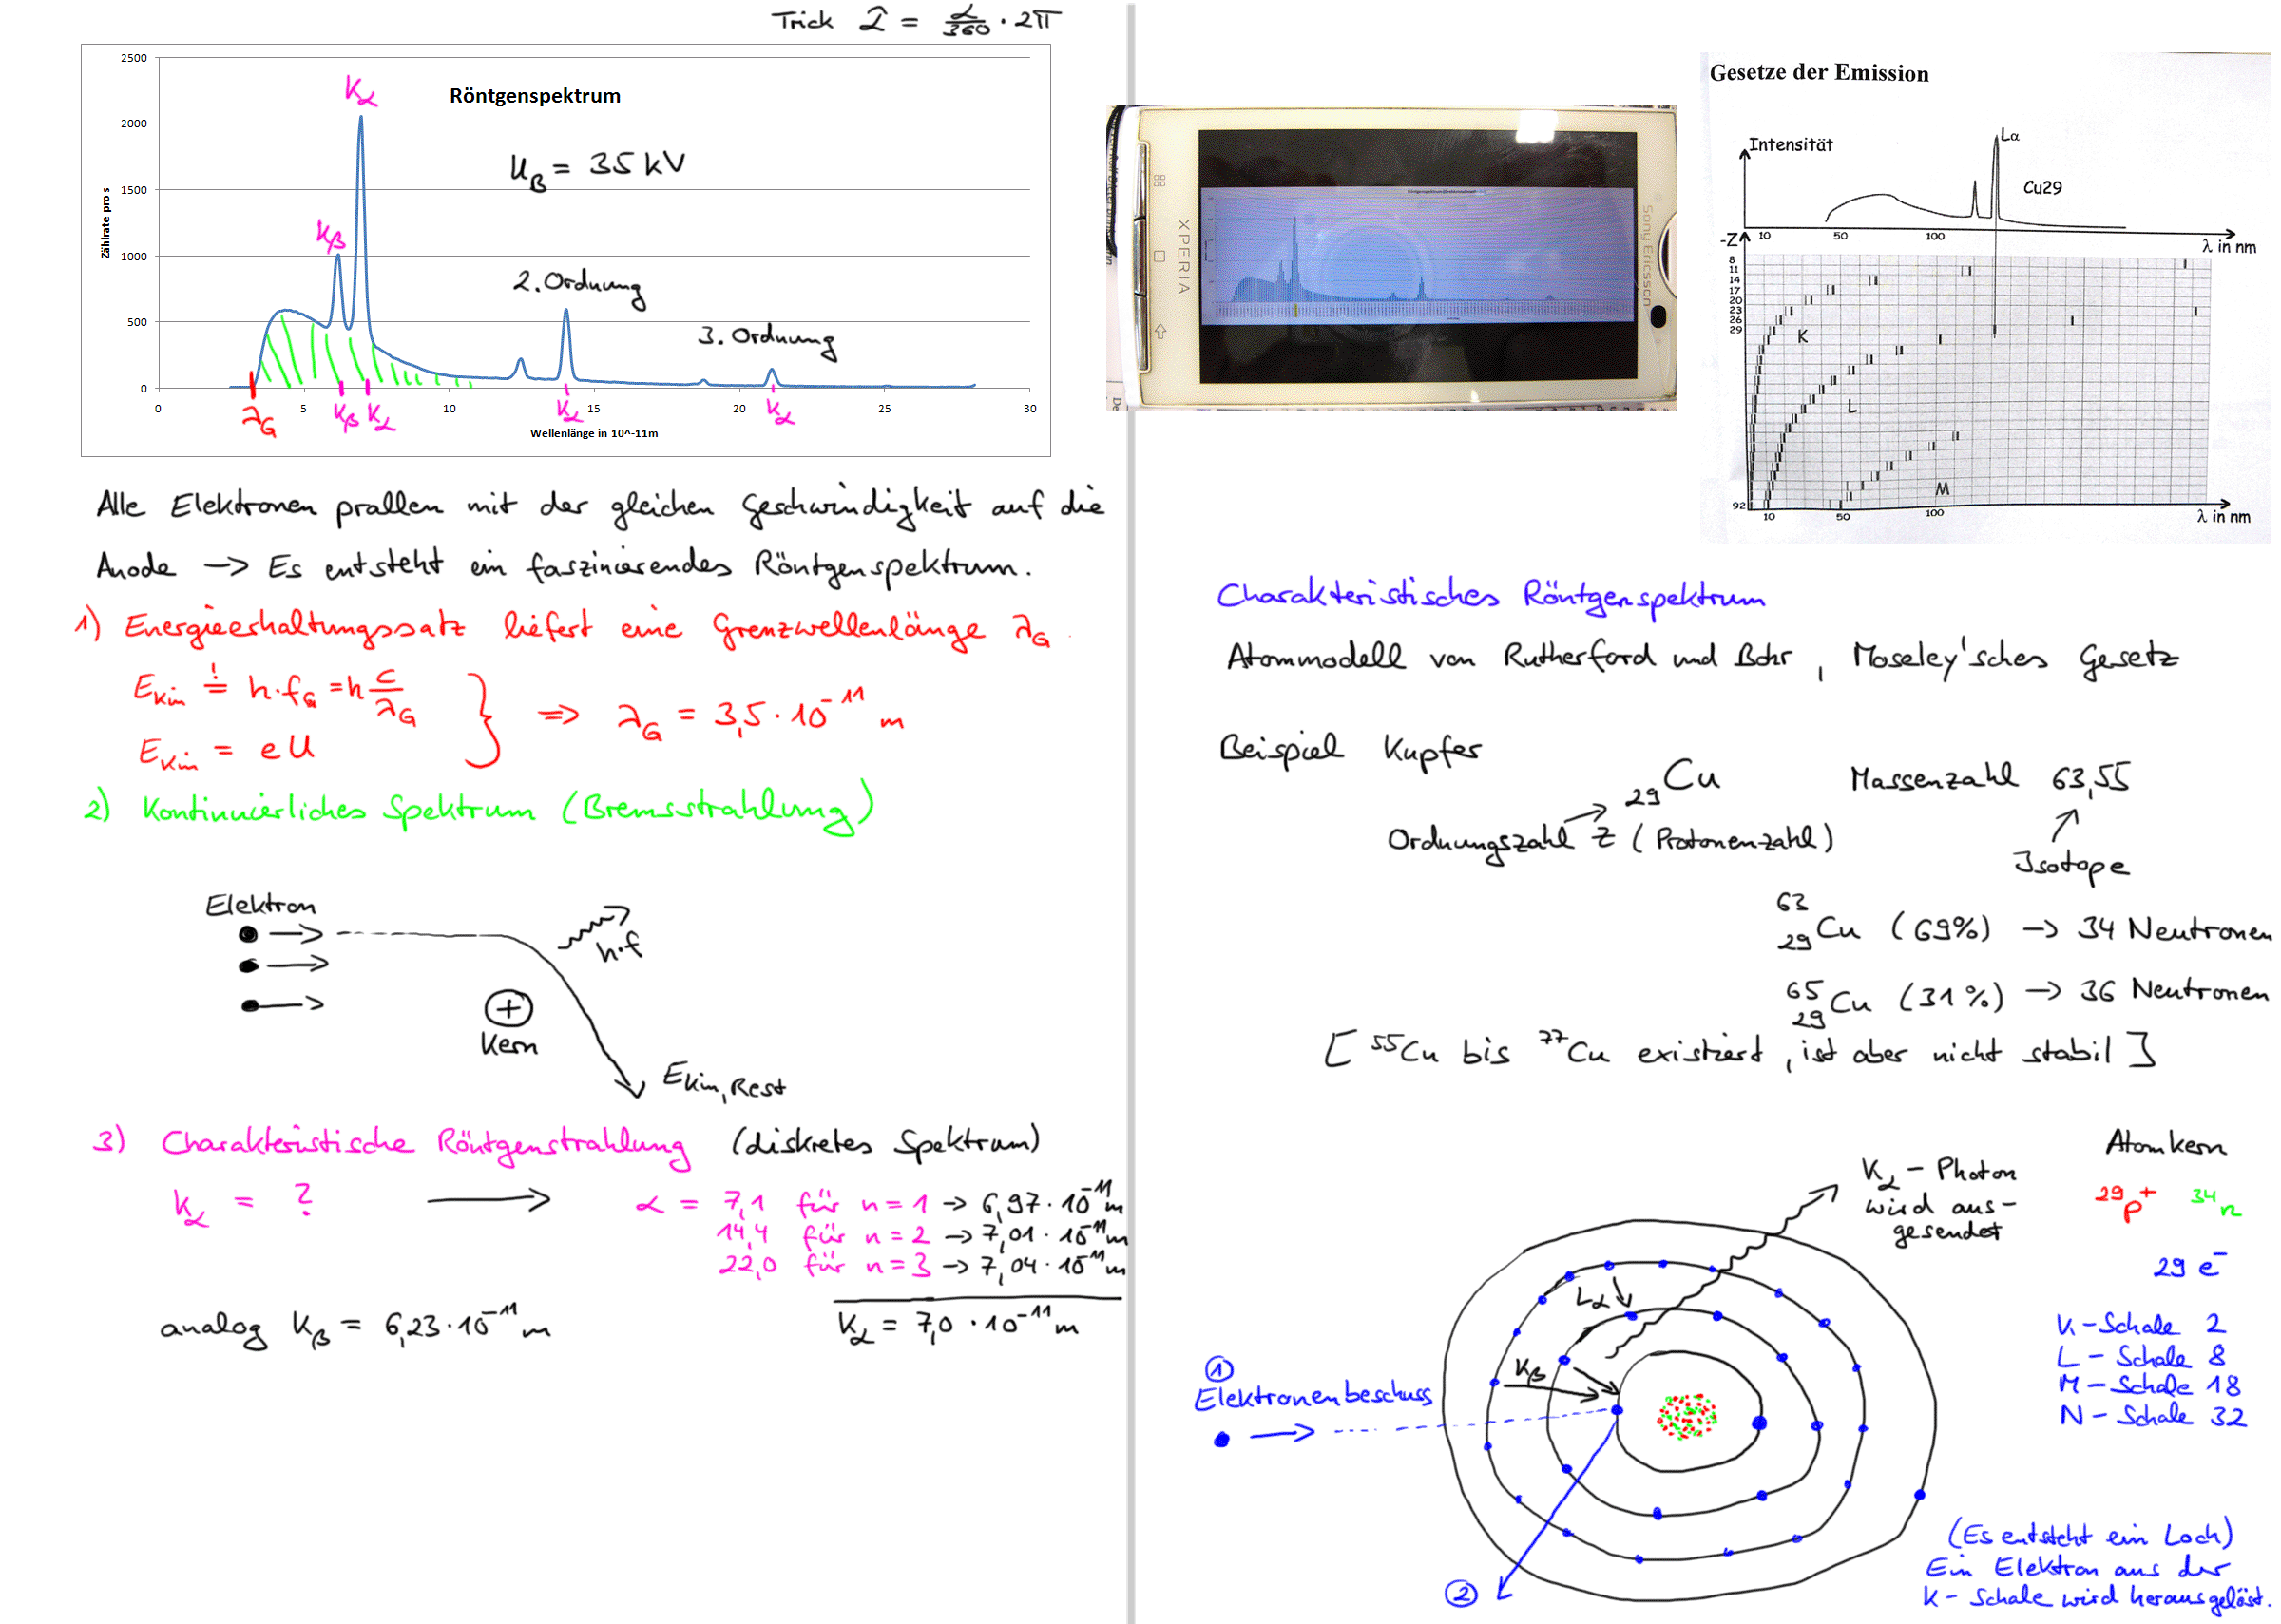 Trick α̂ = α/360 · 2π
Röntgenspektrum
Zählrate pro s
2500
2000
1500
1000
500
0
0 5 10 15 20 25 30
Wellenlänge in 10^-11m
Kα
Kβ
U_B = 35 kV
2. Ordnung
3. Ordnung
λ_G Kβ Kα Kα Kα
Alle Elektronen prallen mit der gleichen Geschwindigkeit auf die
Anode → Es entsteht ein faszinierendes Röntgenspektrum.
1) Energieerhaltungssatz liefert eine Grenzwellenlänge λ_G.
E_kin =! h·f_G = h c/λ_G
E_kin = eU
} ⇒ λ_G = 3,5 · 10^-11 m
2) Kontinuierliches Spektrum (Bremsstrahlung)
Elektron
h·f
+
Kern
E_kin, Rest
3) Charakteristische Röntgenstrahlung (diskretes Spektrum)
Kα = ? → α = 7,1 für n = 1 → 6,97 · 10^-11 m
14,4 für n = 2 → 7,01 · 10^-11 m
22,0 für n = 3 → 7,04 · 10^-11 m
analog Kβ = 6,23 · 10^-11 m
Kα = 7,0 · 10^-11 m
XPERIA
Sony Ericsson
Gesetze der Emission
Intensität
Lα
Cu29
10 50 100
λ in nm
-Z
8
11
14
17
20
23
26
29
92
K
L
M
10 50 100
λ in nm
Charakteristisches Röntgenspektrum
Atommodell von Rutherford und Bohr, Moseley'sches Gesetz
Beispiel Kupfer
29 Cu
Massenzahl 63,55
Ordnungszahl Z (Protonenzahl)
Isotope
63 29 Cu (69%) → 34 Neutronen
65 29 Cu (31%) → 36 Neutronen
[ 55Cu bis 77Cu existiert, ist aber nicht stabil ]
Kα - Photon
wird aus-
gesendet
Atomkern
29 p+ 34 n
29 e-
K-Schale 2
L-Schale 8
M-Schale 18
N-Schale 32
Lα
Kβ
①
Elektronenbeschuss
②
(Es entsteht ein Loch)
Ein Elektron aus der
K-Schale wird herausgelöst.